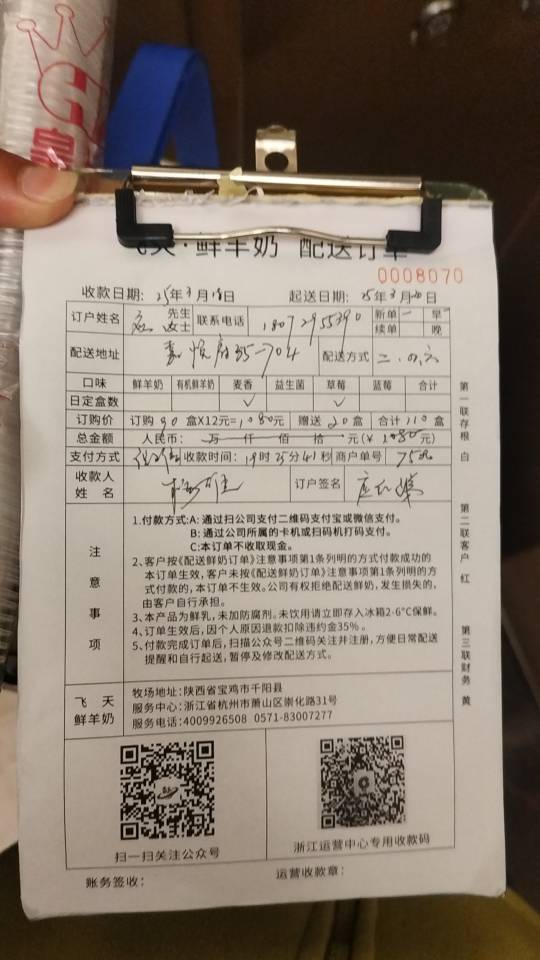 天·鲜羊奶 配送订单
0008070
收款日期: 25年3月18日 起送日期: 25年3月20日
订户姓名 应 先生 女士 联系电话 18072955390 新单 续单 早 晚
配送地址 嘉悦府35-704 配送方式 二.四.六
口味 鲜羊奶 有机鲜羊奶 麦香 益生菌 草莓 蓝莓 合计
日定盒数 ✓ ✓
订购价 订购 90 盒X12元=1080元 赠送 20 盒 合计 110 盒
总金额 人民币: 万 仟 佰 拾 元(￥ 1080元)
支付方式 收款时间: 19时25分41秒 商户单号
收款人 姓 名 订户签名
注意事项
1.付款方式:A:通过扫公司支付二维码支付宝或微信支付。
B:通过公司所属的卡机或扫码机打码支付。
C:本订单不收取现金。
2、客户按《配送鲜奶订单》注意事项第1条列明的方式付款成功的
本订单生效，客户未按《配送鲜奶订单》注意事项第1条列明的方
式付款的，本订单不生效。公司有权拒绝配送鲜奶，发生损失的，
由客户自行承担。
3、本产品为鲜乳，未加防腐剂。未饮用请立即存入冰箱2-6°C保鲜。
4、订单生效后，因个人原因退款扣除违约金35%。
5、付款完成订单后，扫描公众号二维码关注并注册，方便日常配送
提醒和自行起送，暂停及修改配送方式。
飞天 鲜羊奶
牧场地址:陕西省宝鸡市千阳县
服务中心:浙江省杭州市萧山区崇化路31号
服务电话:4009926508 0571-83007277
扫一扫关注公众号
浙江运营中心专用收款码
账务签收:
运营收款章:
第一联存根 白
第二联客户 红
第三联财务 黄